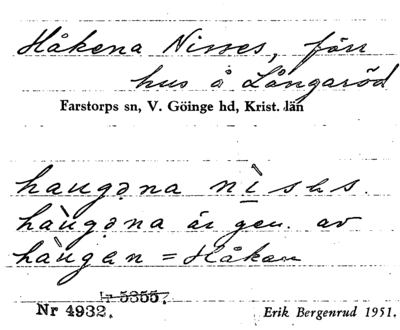 Håkena Nisses, förr
hus å Långaröd
Farstorps sn, V. Göinge hd, Krist. län
haugəna nìshs.
hàugəna är gen. av
hàugan = Håkan
Nr 5355.
Nr 4932.
Erik Bergenrud 1951.